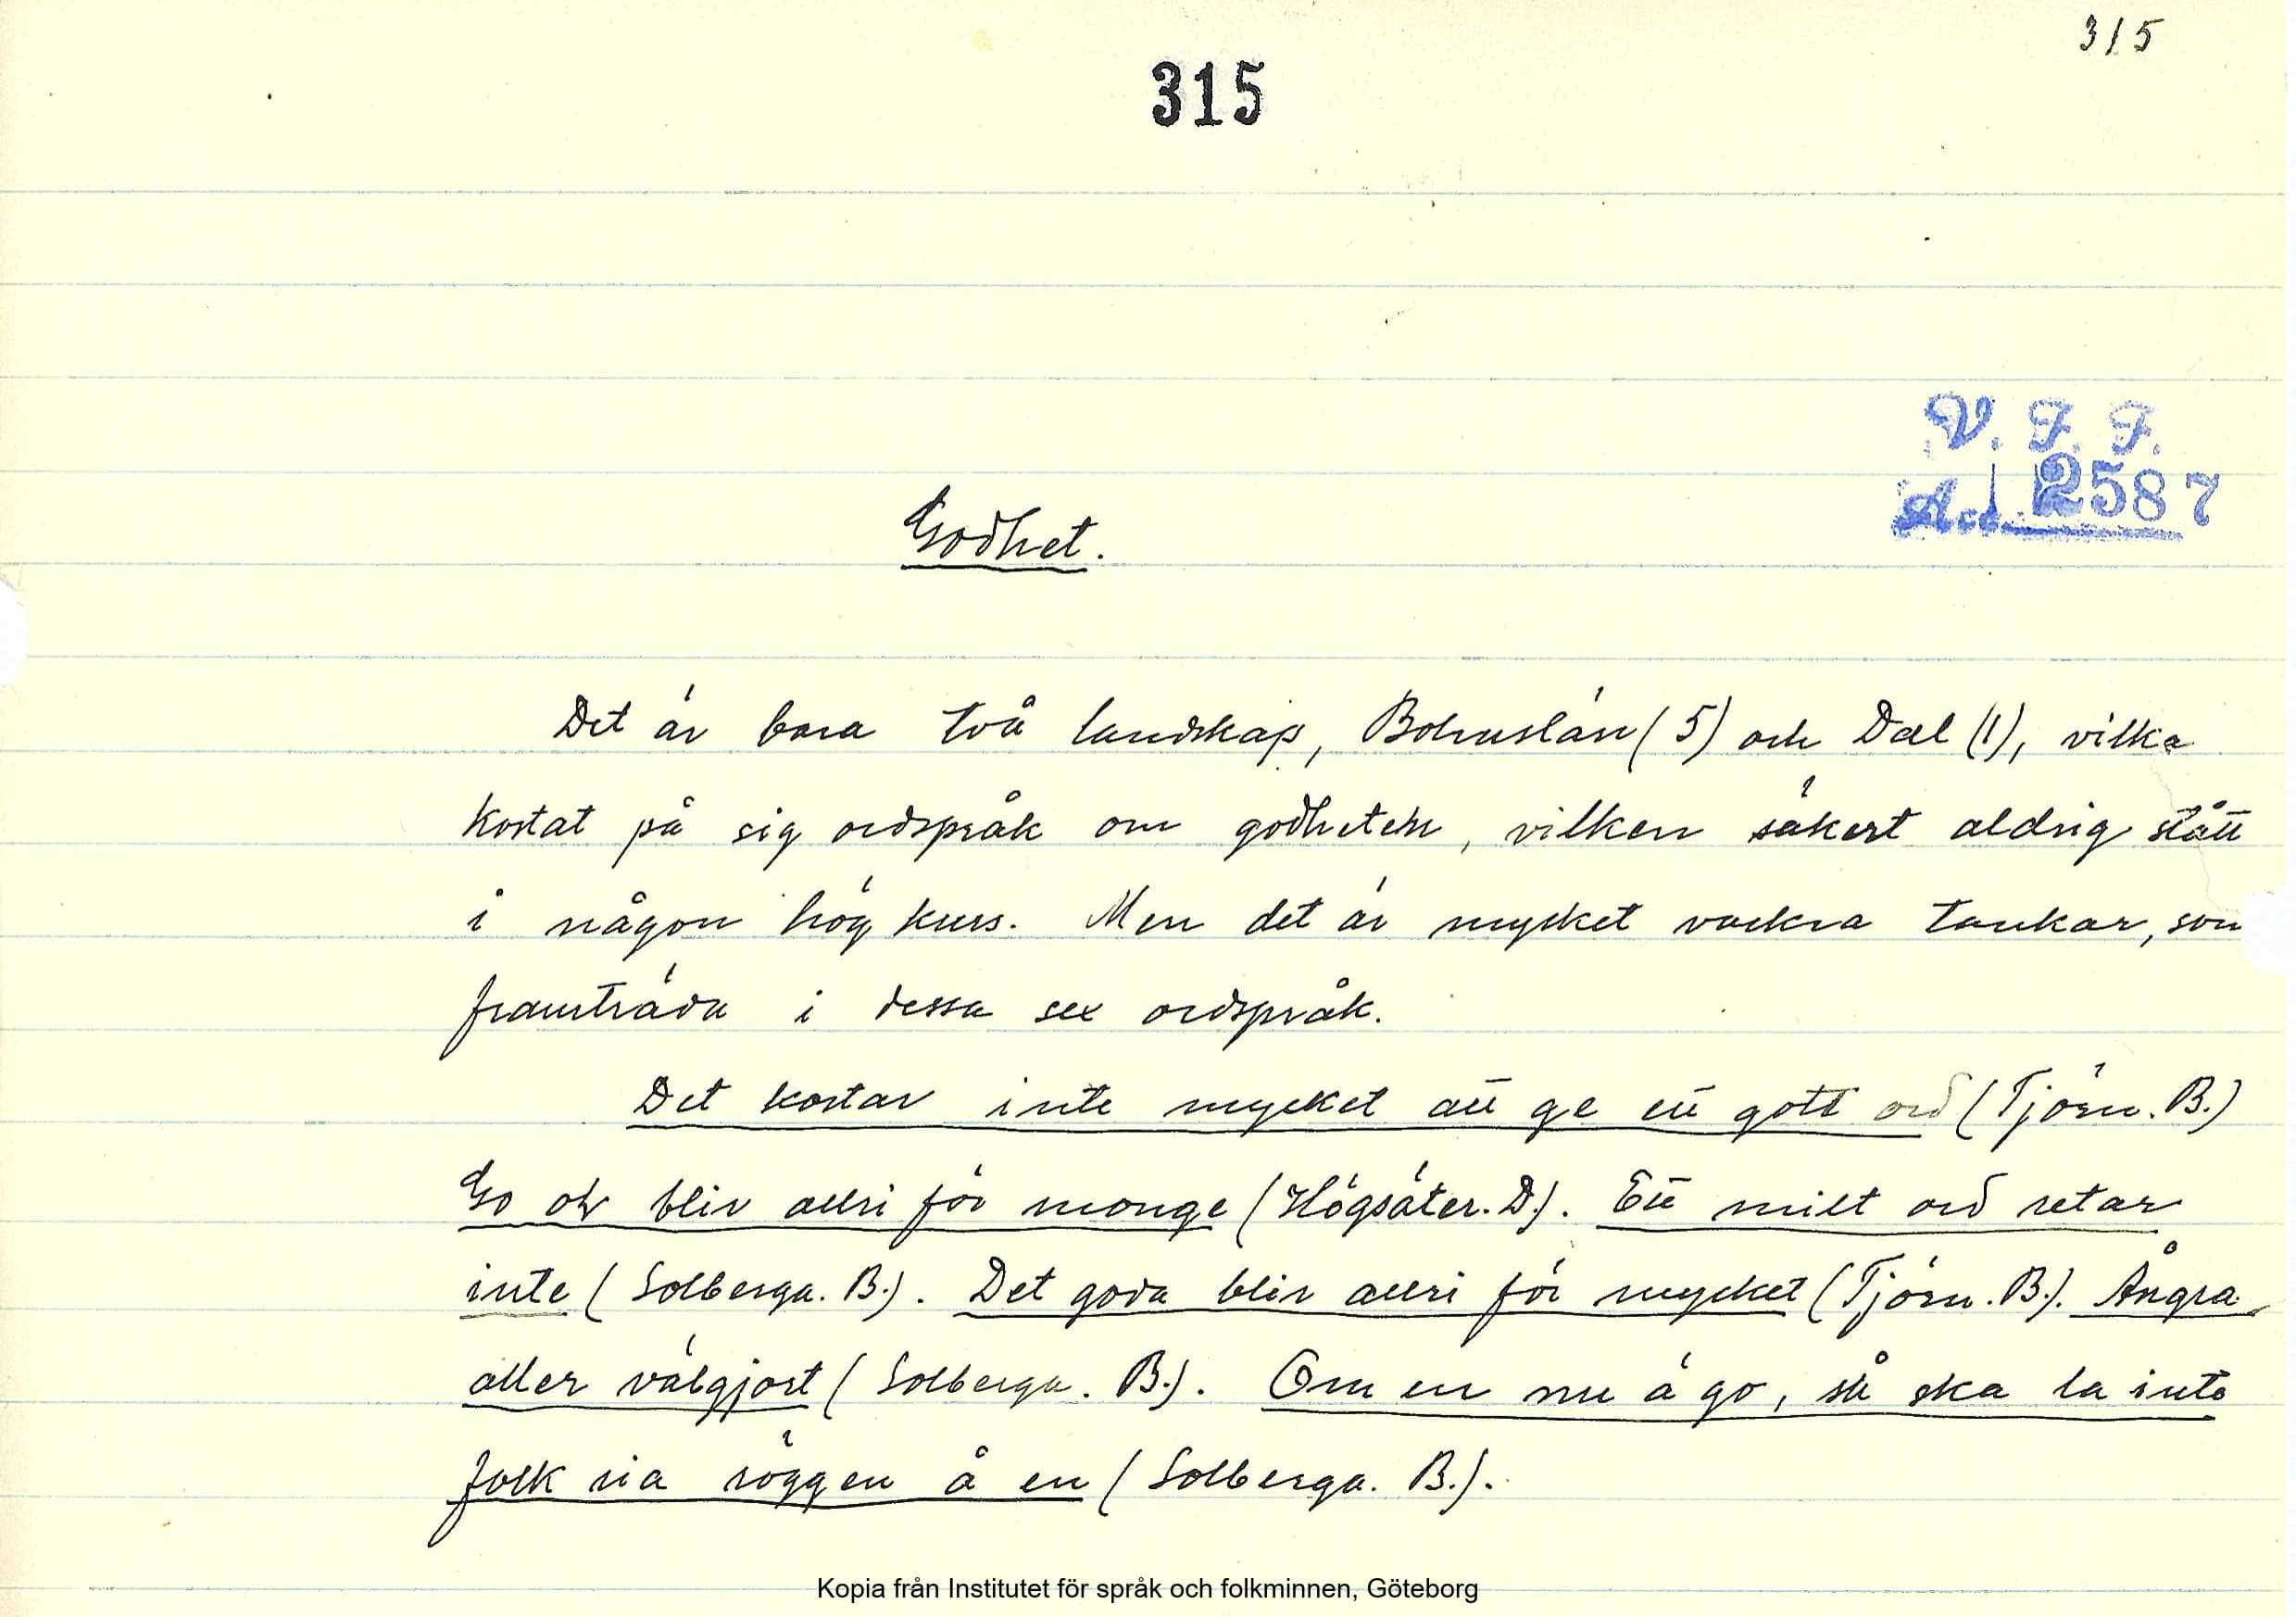 315
315
V. F. F.
Acc. 2587
Godhet.
Det är bara två landskap, Bohuslän (5) och Dal (1), vilka
kostat på sig ordspråk om godheten, vilken säkert aldrig stått
i någon hög kurs. Men det är mycket vackra tankar, som
framträda i dessa sex ordspråk.
Det kostar inte mycket att ge ett gott ord (Tjörn. B.)
Go oh bliv allri för monge (Högsäter. D.). Ett milt ord retar
inte (Solberga. B.). Det goda bliv allri för mycket (Tjörn. B.). Ångra
aller välgjort (Solberga. B.). Om en nu ä go, så ska la inte
folk ria röggen å en (Solberga. B.).
Kopia från Institutet för språk och folkminnen, Göteborg